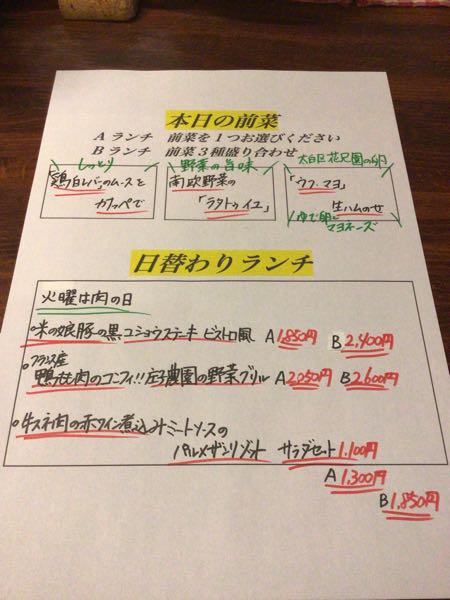 本日の前菜
Aランチ 前菜を1つお選びください
Bランチ 前菜3種盛り合わせ
しっとり
鶏白レバーのムースを
カナッペで
野菜の旨味
南欧野菜の
「ラタトゥイユ」
太白区花兄園の卵
「ウフ・マヨ」
生ハムのせ
ゆで卵に
マヨネーズ
日替わりランチ
火曜は肉の日
○米の娘豚の黒コショウステーキ ビストロ風 A 1,850円 B 2,400円
○フランス産
鴨もも肉のコンフィ!! 庄子農園の野菜グリル A 2050円 B 2600円
○牛スネ肉の赤ワイン煮込みミートソースの
パルメザンリゾット サラダセット 1,100円
A 1,300円
B 1,850円